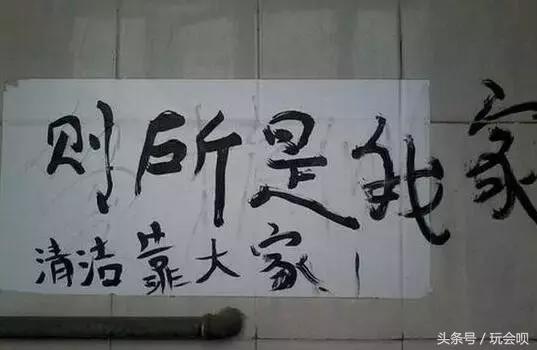 则所是我家
清洁靠大家!
头条号/玩会呗